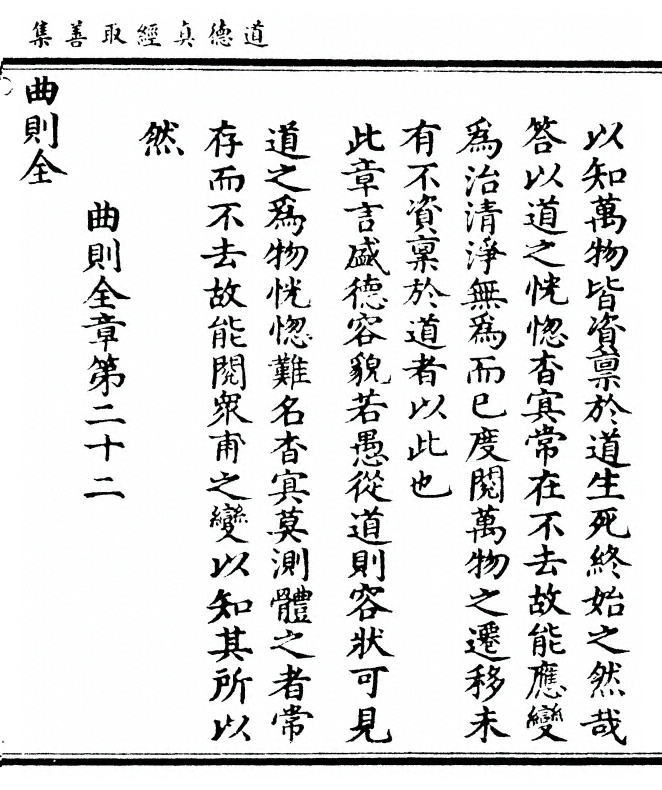 道德真經取善集
以知萬物皆資禀於道生死終始之然哉
答以道之恍惚杳㝠常在不去故能應變
為治清淨無為而已度閱萬物之遷移未
有不資禀於道者以此也
此章言盛德容貌若愚從道則容狀可見
道之為物恍惚難名杳㝠莫測體之者常
存而不去故能閱衆甫之變以知其所以
然
曲則全章第二十二
曲則全